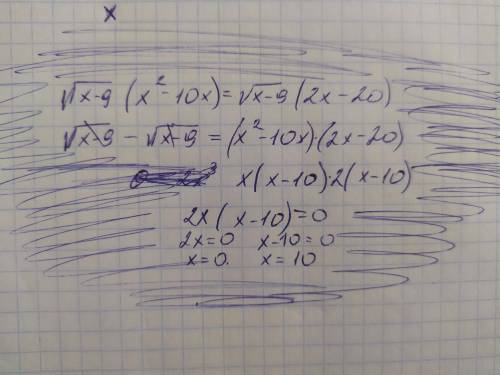 x
√x-9 (x²-10x) = √x-9 (2x-20)
√x-9 - √x-9 = (x²-10x)(2x-20)
x(x-10)·2(x-10)
2x(x-10)=0
2x=0 x-10=0
x=0. x=10